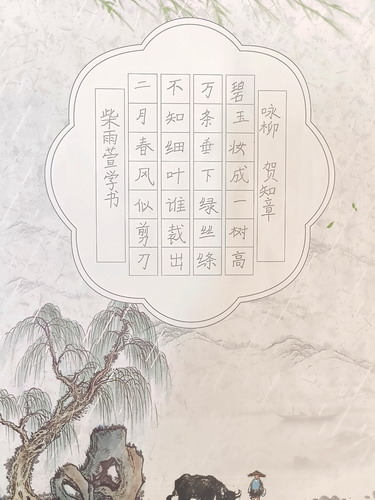 咏柳 贺知章
碧玉妆成一树高
万条垂下绿丝绦
不知细叶谁裁出
二月春风似剪刀
柴雨萱学书